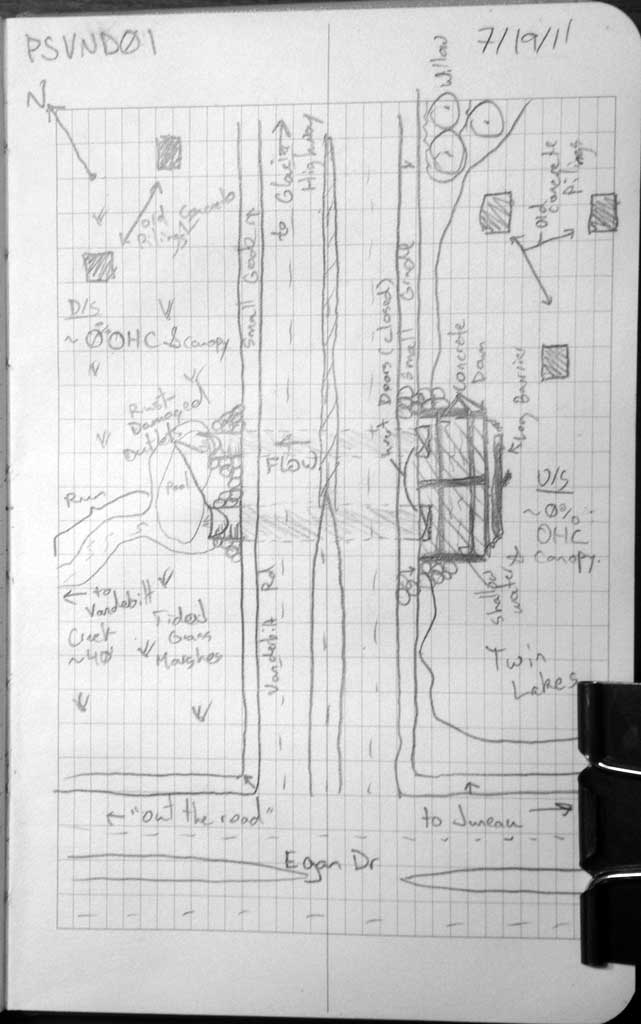 PSVND01
7/19/11
N
Willow
to Glacier
Highway
Old
Concrete
Pilings
Old
Concrete
Pilings
Small Grade
D/S
~0% OHC
canopy
Doors (closed)
Concrete
Dam
Barrier
Rust
Damaged
Outlet
Pool
FLOW
Run
U/S
~0%
OHC
canopy
← to
Vandebilt
Creek
~40'
Tidal
Grass
Marshes
Vandebilt Rd
Shallow
water
Twin
Lakes
← "out the road"
to Juneau →
Egan Dr